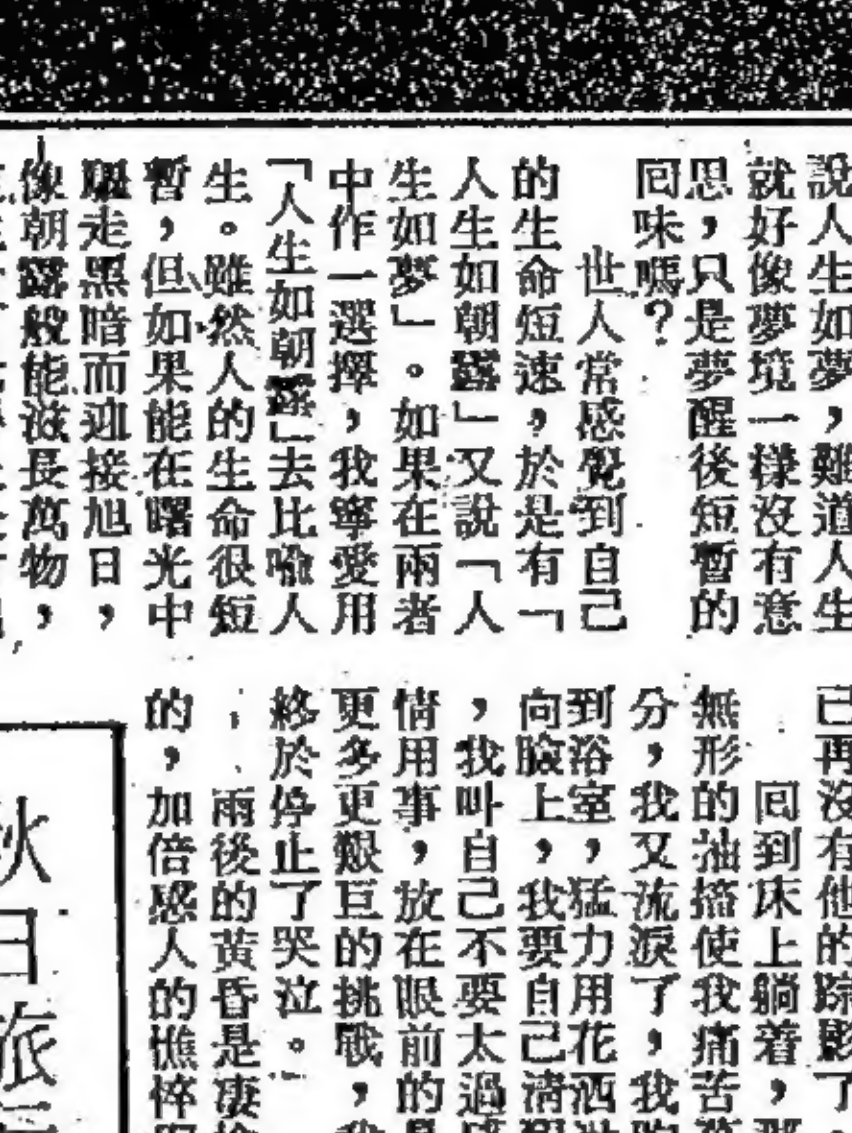 說人生如夢，難道人生
就好像夢境一樣沒有意
思，只是夢醒後短暫的
囘味嗎？
世人常感覺到自己
的生命短速，於是有「
人生如朝露」又說「人
生如夢」。如果在兩者
中作一選擇，我寧愛用
「人生如朝露」去比喻人
生。雖然人的生命很短
暫，但如果能在曙光中
驅走黑暗而迎接旭日，
像朝露般能滋長萬物，
已再沒有他的踪影了
囘到床上躺着，那
無形的抽搐使我痛苦萬
分，我又流淚了，我
到浴室，猛力用花洒
向臉上，我要自己清
，我叫自己不要太過
情用事，放在眼前的是
更多更艱巨的挑戰，我
終於停止了哭泣。
雨後的黃昏是凄
的，加倍感人的憔悴
秋日旅行